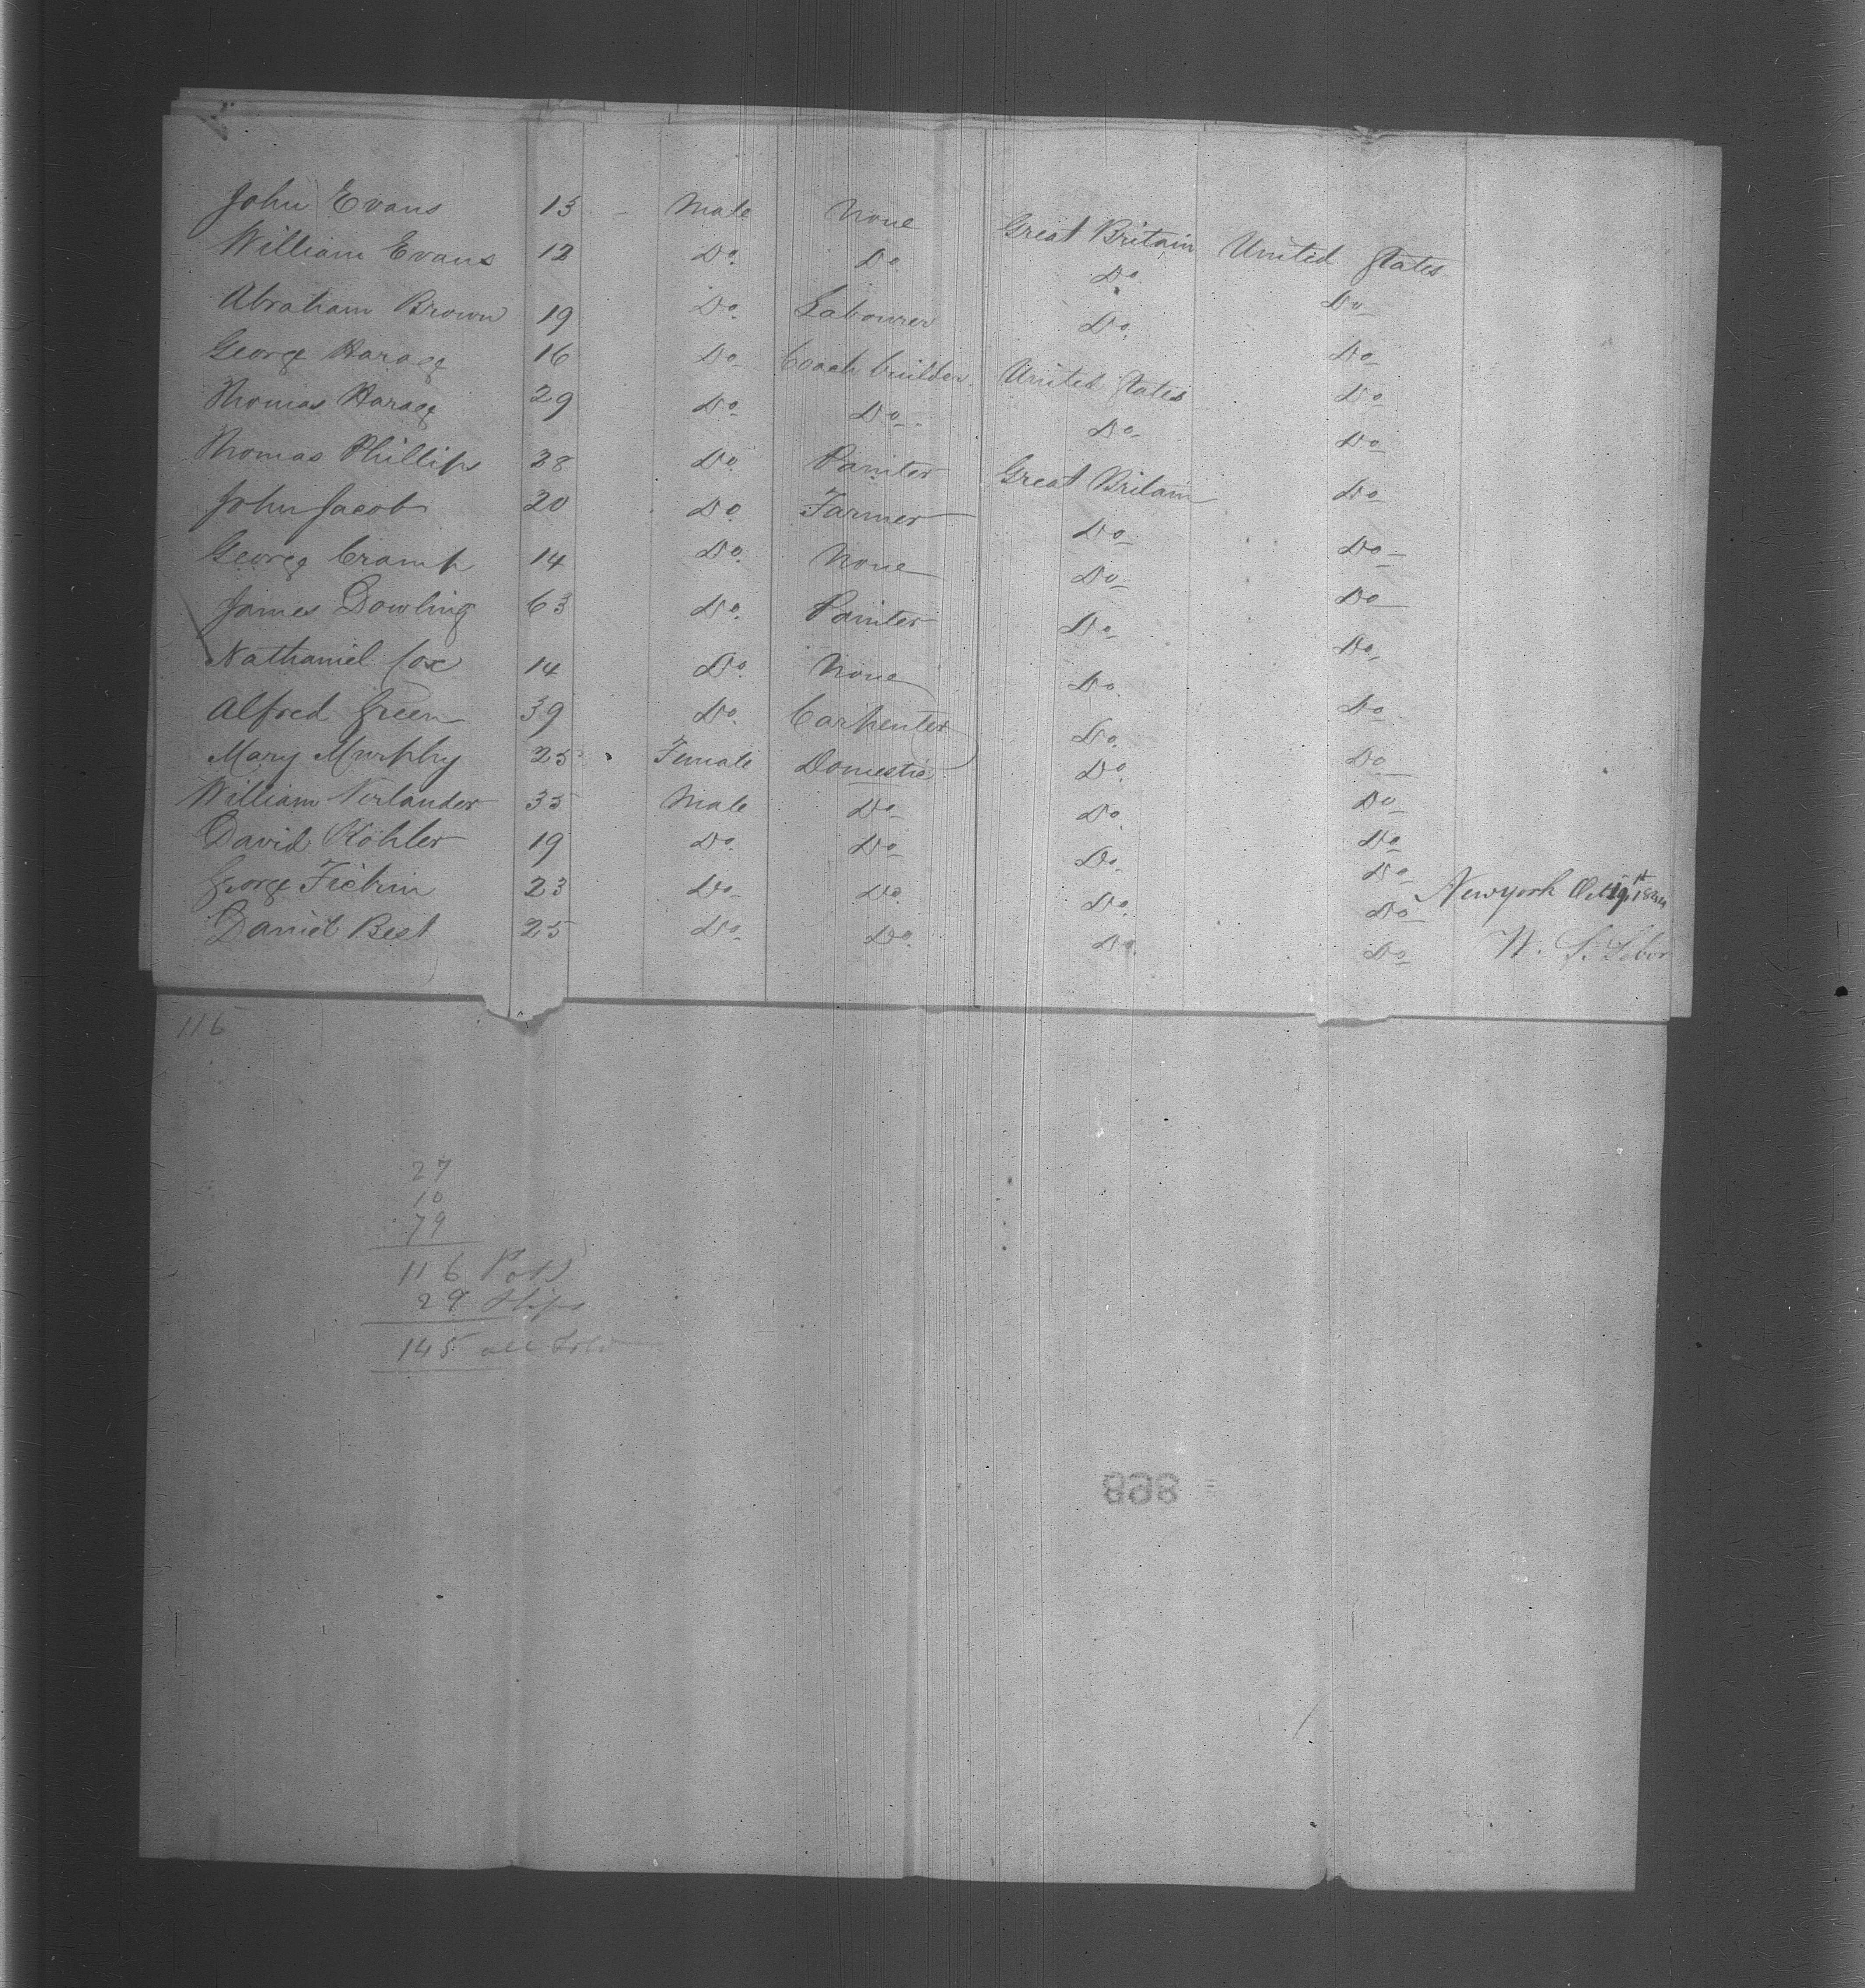 John Evans 13 - Male None Great Britain United States
William Evans 12 Do. Do. Do. Do
Abraham Brown 19 Do. Labourer Do. Do
George Haragg 16 Do Coach builder United States Do
Thomas Haragg 29 Do Do Do Do
Thomas Phillips 38 Do. Painter Great Britain Do
John Jacob 20 Do. Farmer Do Do
Georg Cramp 14 Do. None Do Do
James Dowling 63 Do. Painter Do Do
Nathaniel Cox 14 Do. None Do. Do
Alfred Green 39 Do. Carpenter Do. Do
Mary Murphy 25 Female Domestic Do. Do
William Norlander 35 Male Do Do. Do
David Kohler 19 Do. Do Do. Do
George 23 Do Do. Do. Do Newyork 1844
Daniel Best 25 Do. Do. Do. Do
116
27
10
79
116
29 Ships
145 all told
868